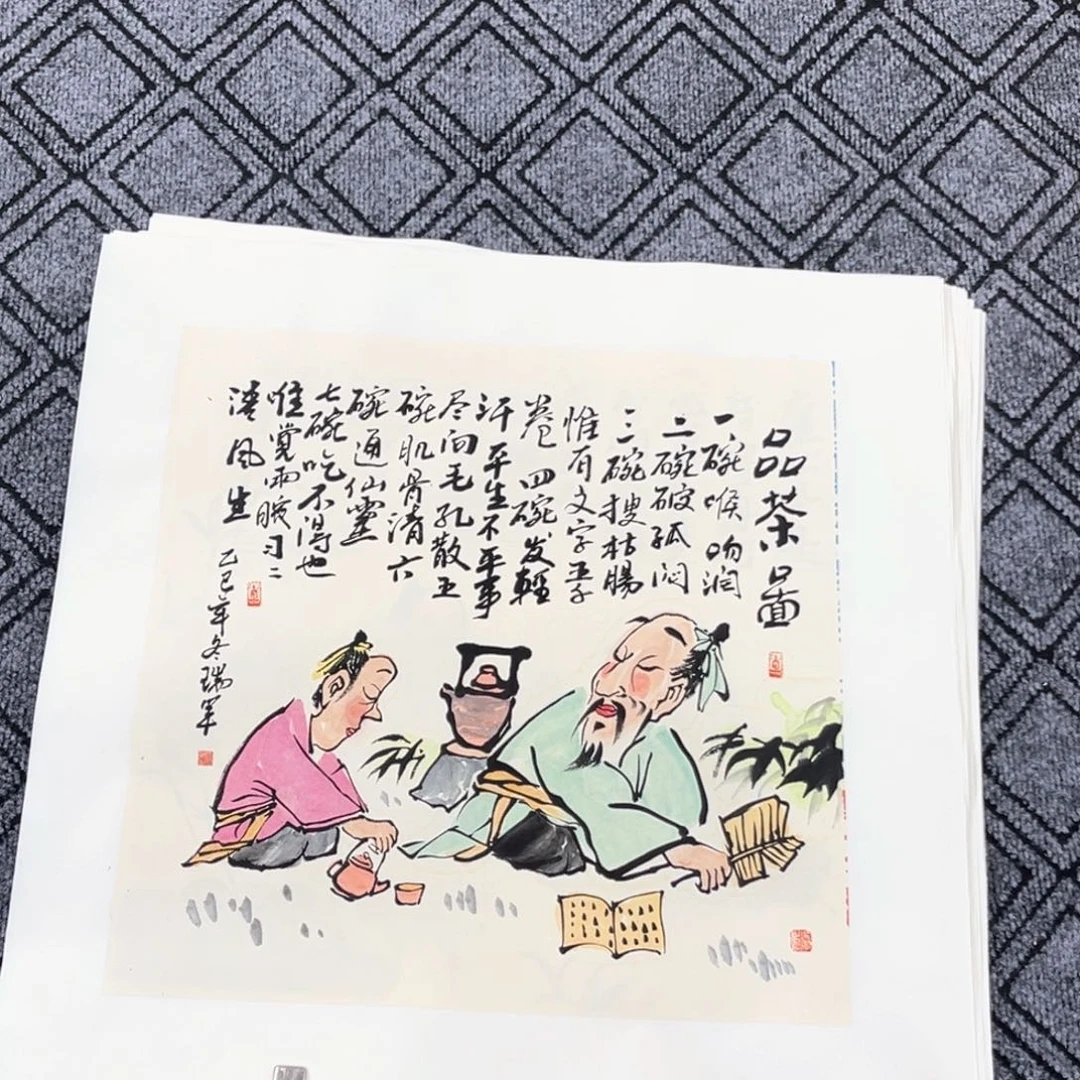 品茶圖
一碗喉吻润
二碗破孤闷
三碗搜枯腸
惟有文字五千
卷 四碗发輕
汗平生不平事
尽向毛孔散五
碗肌骨清六
碗通仙靈
七碗吃不得也
唯覺兩腋习〻
清风生 乙巳年冬瑞军